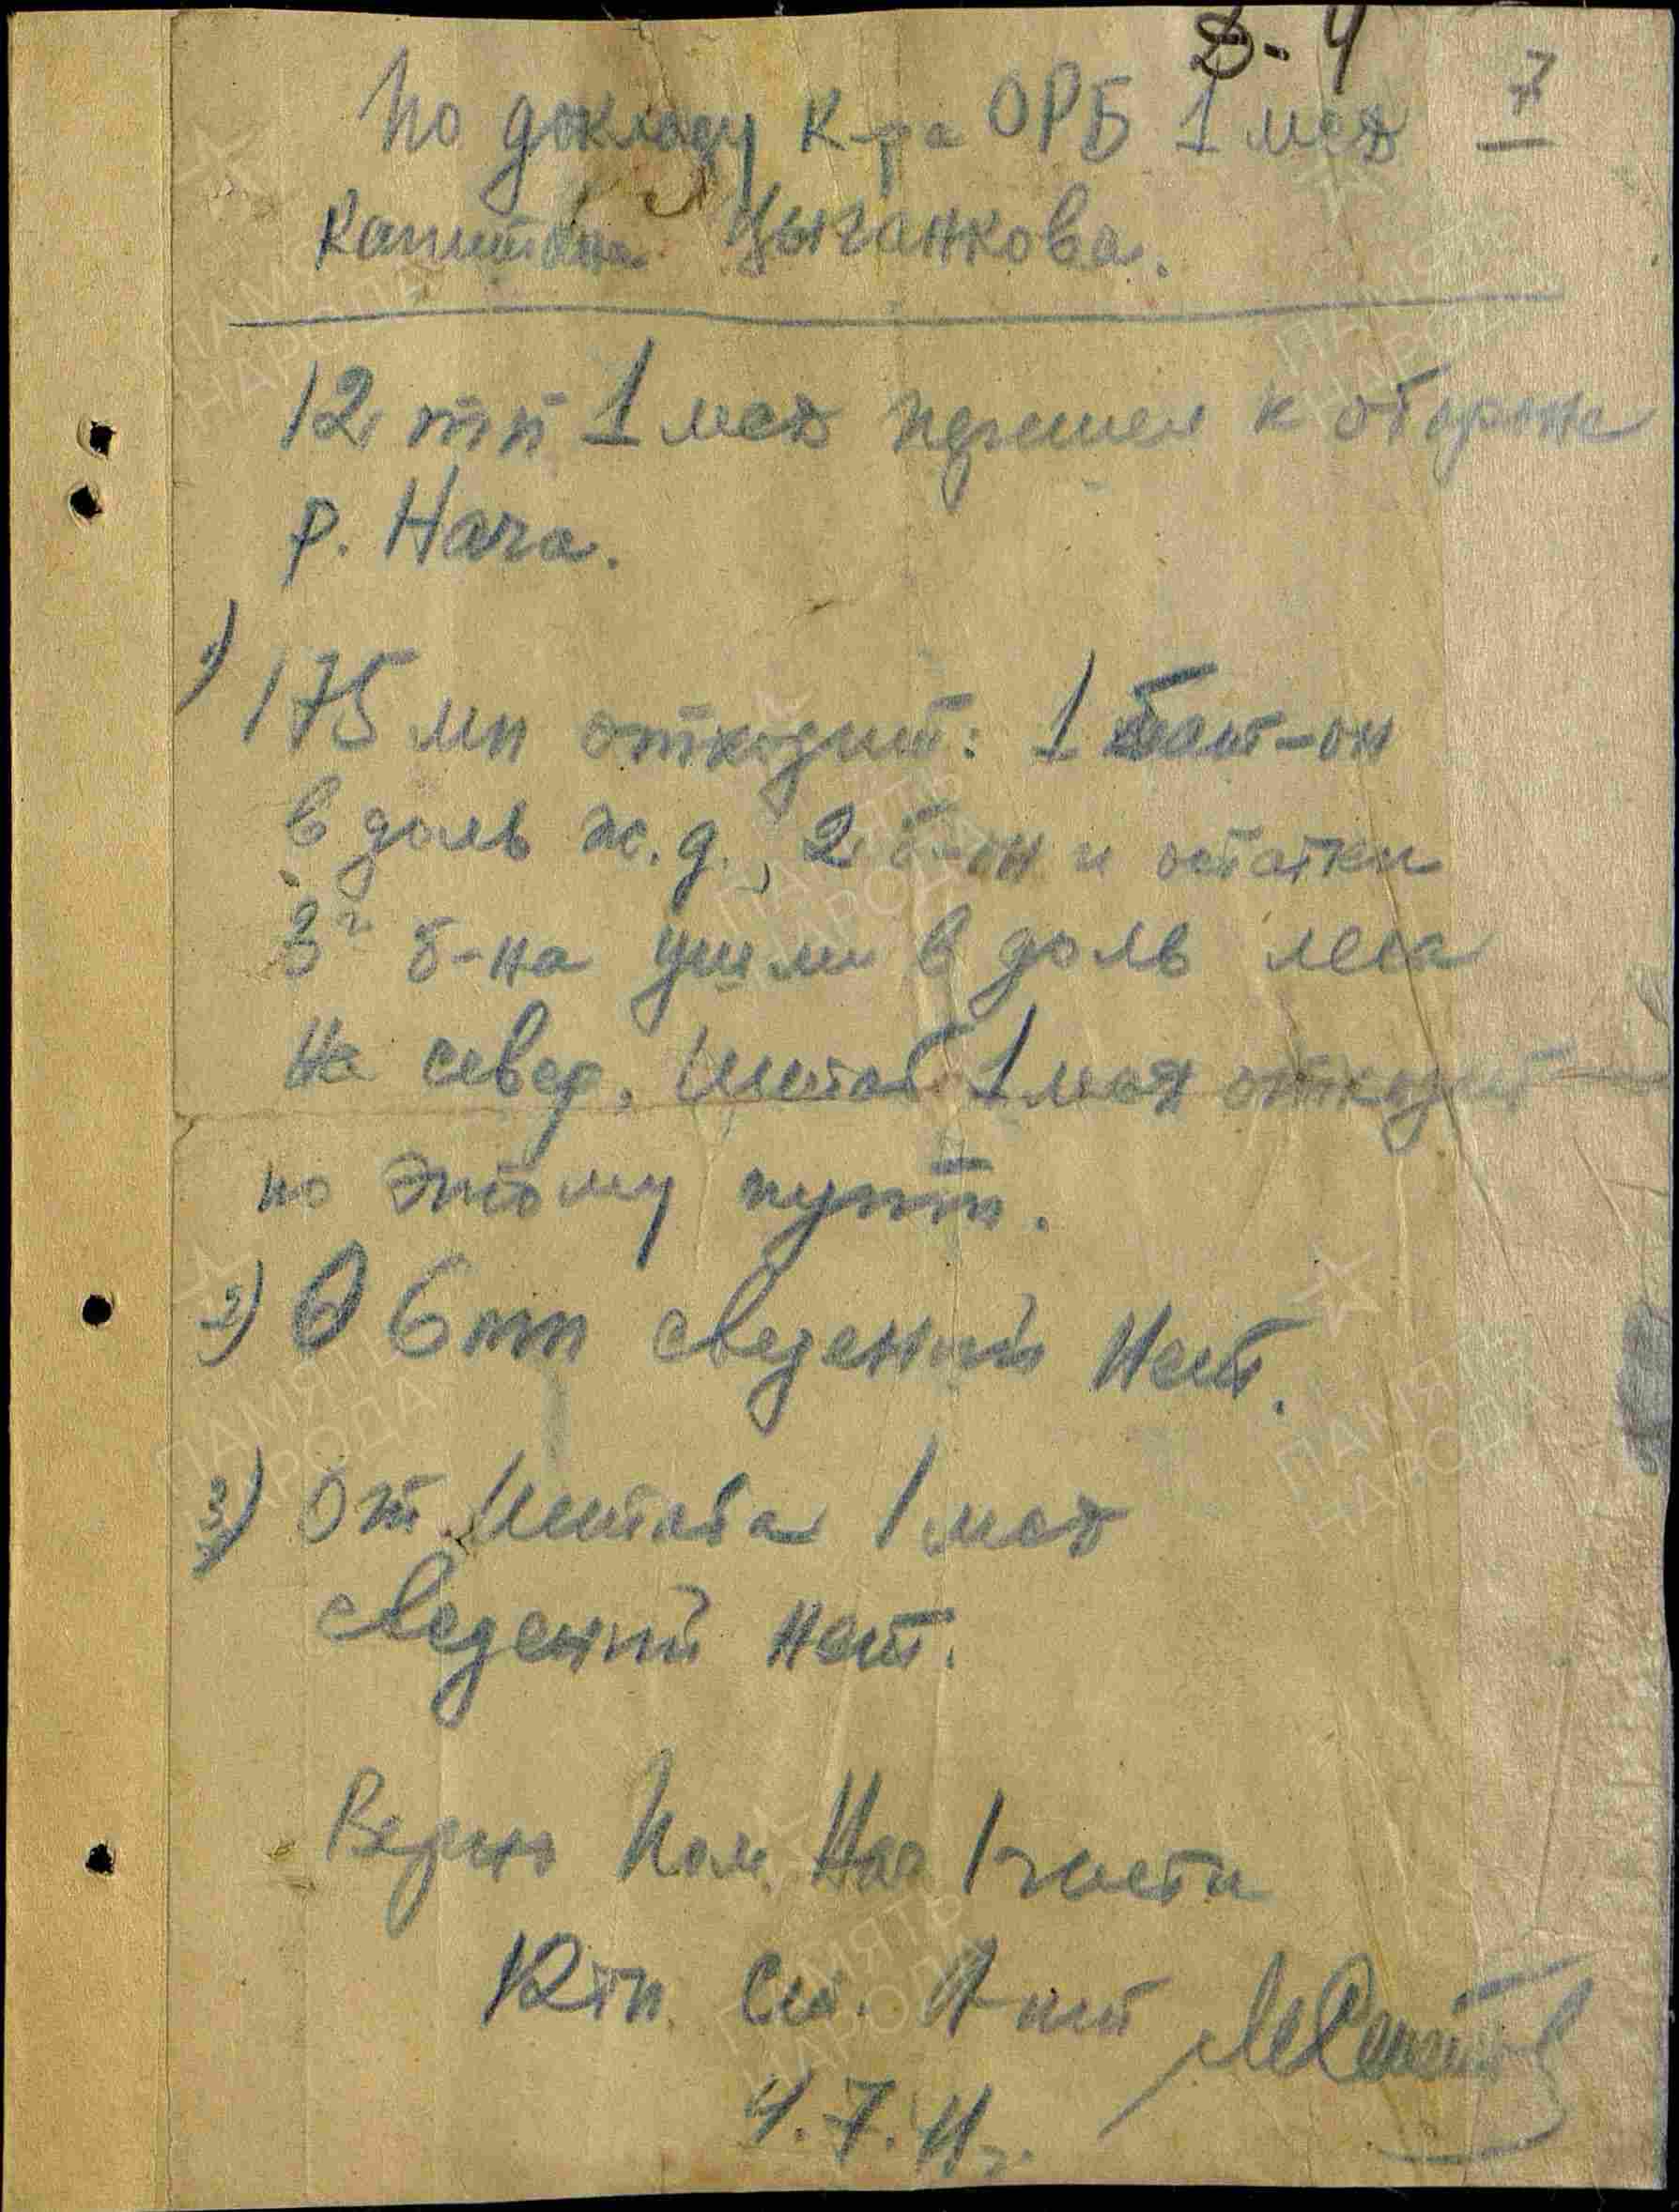 Д-4
7
По докладу к-ра ОРБ 1 мсд
капитана Цыганкова.
12 тп 1 мсд перешел к обороне
р. Нача.
1) 175 мп отходит: 1 бат-он
в доль ж.д., 2 б-он и остатки
3го б-на ушли в доль леса
на север. Штаб 1 мсд отходит
по этому пути.
2) О 6 тп сведений нет.
3) От штаба 1 мсд
сведений нет.
Верно Пом Нач 1 части
12 тп. Ст. Л-нт
4.7.41г.
ПАМЯТЬ НАРОДА